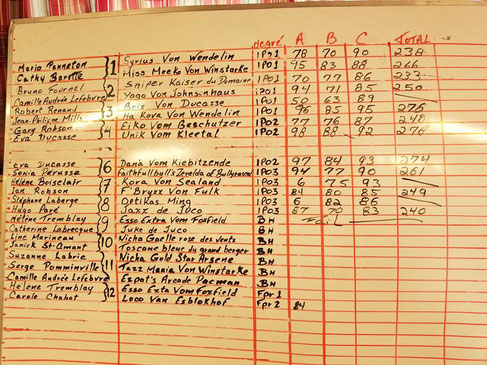 degré A B C TOTAL
Mario Panneton 1 Syrius Von Wendelin IPO1 78 70 90 238
Cathy Barette Miss Meeko Von Winstarke IPO1 95 83 88 266
Bruno Fournel 2 Sniper Kaiser du Domaine IPO1 70 77 86 233
Camille Audrée Lefebvre Yago Von Johnsinhaus IPO1 94 71 85 250
Robert Renaud 3 Brix Von Ducasse IPO1 50 63 89
Jean-Philippe Mills Ha Kova Von Wendelin IPO1 96 85 95 276
Gary Robson 4 Eiko Vom Beschutzer IPO2 77 76 87 248
Eva Ducasse Unik Vom Kleetal IPO2 98 88 92 276
Eva Ducasse 6 Dana Vom Kiebitzende IPO2 97 84 93 274
Sonia Perusse Faithfullbull's Zerelda of IPO3 94 77 90 261
Hélène Boisclair 7 Kora Von Sealand IPO3 6 75 93
Jan Robson F Bryxx Von Fulk IPO3 84 80 85 249
Stéphane Laberge 8 Oetikas Ming IPO3 6 82 86
Hugo Paré Jaxx de Juco IPO3 87 70 83 240
Hélène Tremblay 9 Esso Extra Vom Foxfield BH
Catherine Labrecque Juke de Juco BH
Line Marineau 10 Nicha Gaelle rose des vents BH
Janick St-Amant Toscane bleue du grand berger BH
Suzanne Labrie Nicha Gold Star Arsene BH
Serge Pomminville 11 Tazz Mania Von Winstarke BH
Camille Audrée Lefebvre Espat's Arcade Pacman BH
Hélène Tremblay 12 Esso Exta Vom Foxfield Fpr 1
Carole Chabot Loco Van Esblokhof Fpr 2 84